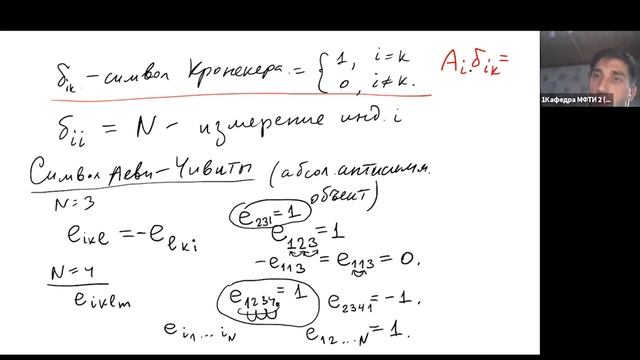 δik - символ Кронекера = { 1, i=k
0, i≠k.
Ai δik =
δii = N - измерение инд. i
Символ Леви-Чивиты (абсол. антисимм. объект)
N=3
e231 = 1
eike = -eeki
e123 = 1
-e113 = e113 = 0.
N=4
eikem
e1234 = 1
e2341 = -1.
ei1...iN
e12...N = 1.
1Кафедра МФТИ 2 (...